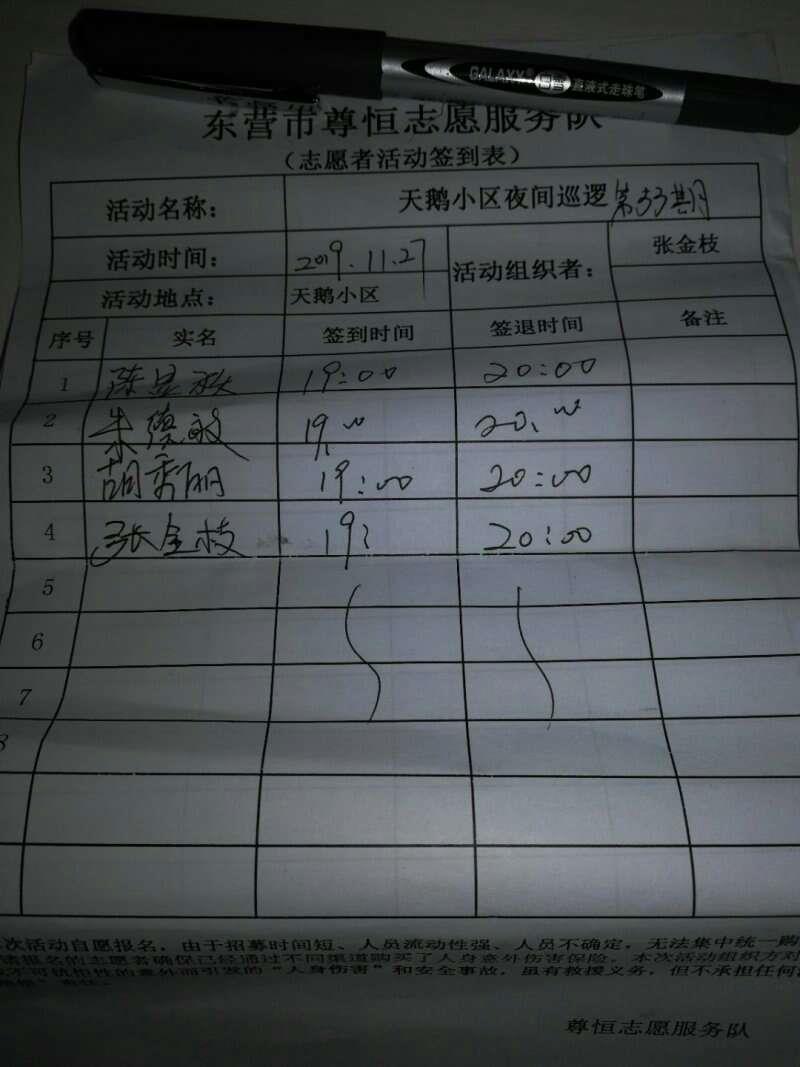 GALAXY® 直液式走珠笔
东营市尊恒志愿服务队
（志愿者活动签到表）
活动名称： 天鹅小区夜间巡逻 第33期
活动时间： 2019.11.27 活动组织者： 张金枝
活动地点： 天鹅小区
序号 实名 签到时间 签退时间 备注
1 19:00 20:00
2 朱德敏 19:00 20:00
3 胡秀丽 19:00 20:00
4 张金枝 19: 20:00
5
6
7
8
次活动自愿报名，由于招募时间短、人员流动性强、人员不确定，无法集中统一购
请报名的志愿者确保已经通过不同渠道购买了人身意外伤害保险。本次活动组织方对
不可抗拒性的意外而引发的“人身伤害”和安全事故，虽有救援义务，但不承担任何
尊恒志愿服务队